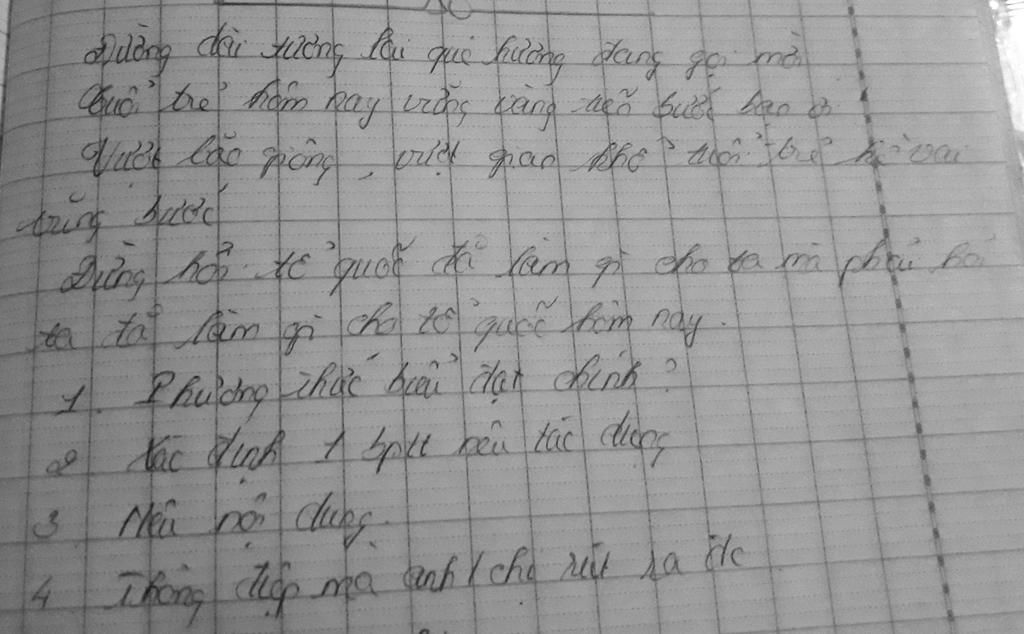 Đường dài tương lai quê hương đang gọi mời
Tuổi trẻ hôm nay vững vàng tiến bước bạn ơi
Vượt bão giông, vượt gian khổ tuổi trẻ kề vai
từng bước
Đừng hỏi tổ quốc đã làm gì cho ta mà phải hỏi
ta đã làm gì cho tổ quốc hôm nay.
1. Phương thức biểu đạt chính?
2 Xác định 1 bptt nêu tác dụng
3 Nêu nội dung.
4 Thông điệp mà anh/chị rút ra đc